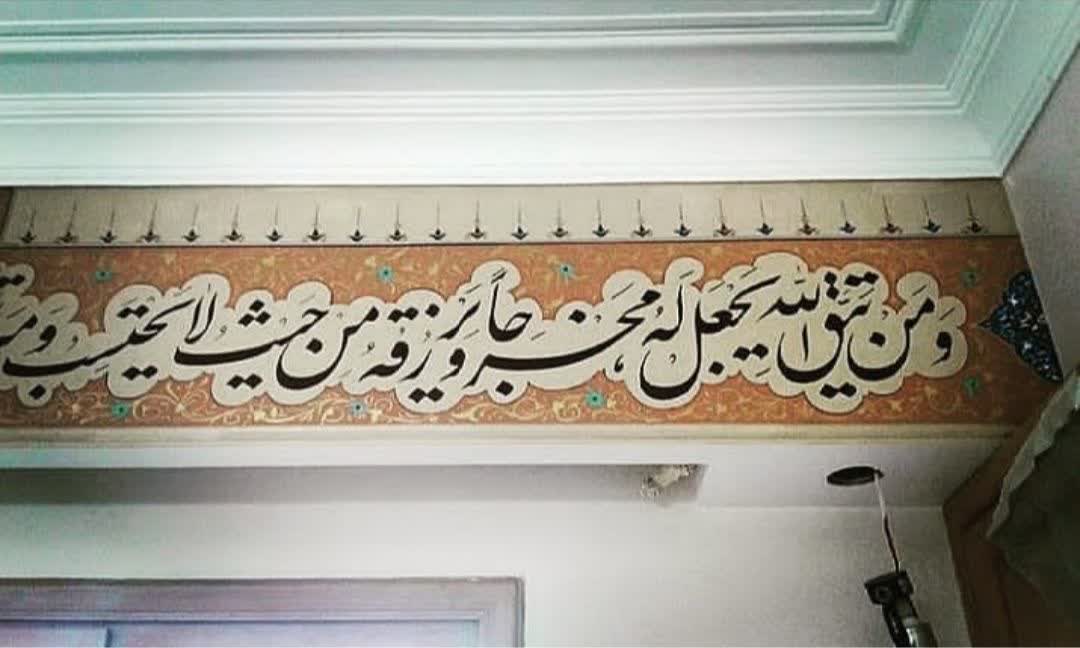 وَمَن يَتَّقِ اللّٰهَ يَجْعَل لَهُ مَخْرَجاً وَ يَرْزُقْهُ مِنْ حَيْثُ لا يَحْتَسِب وَ